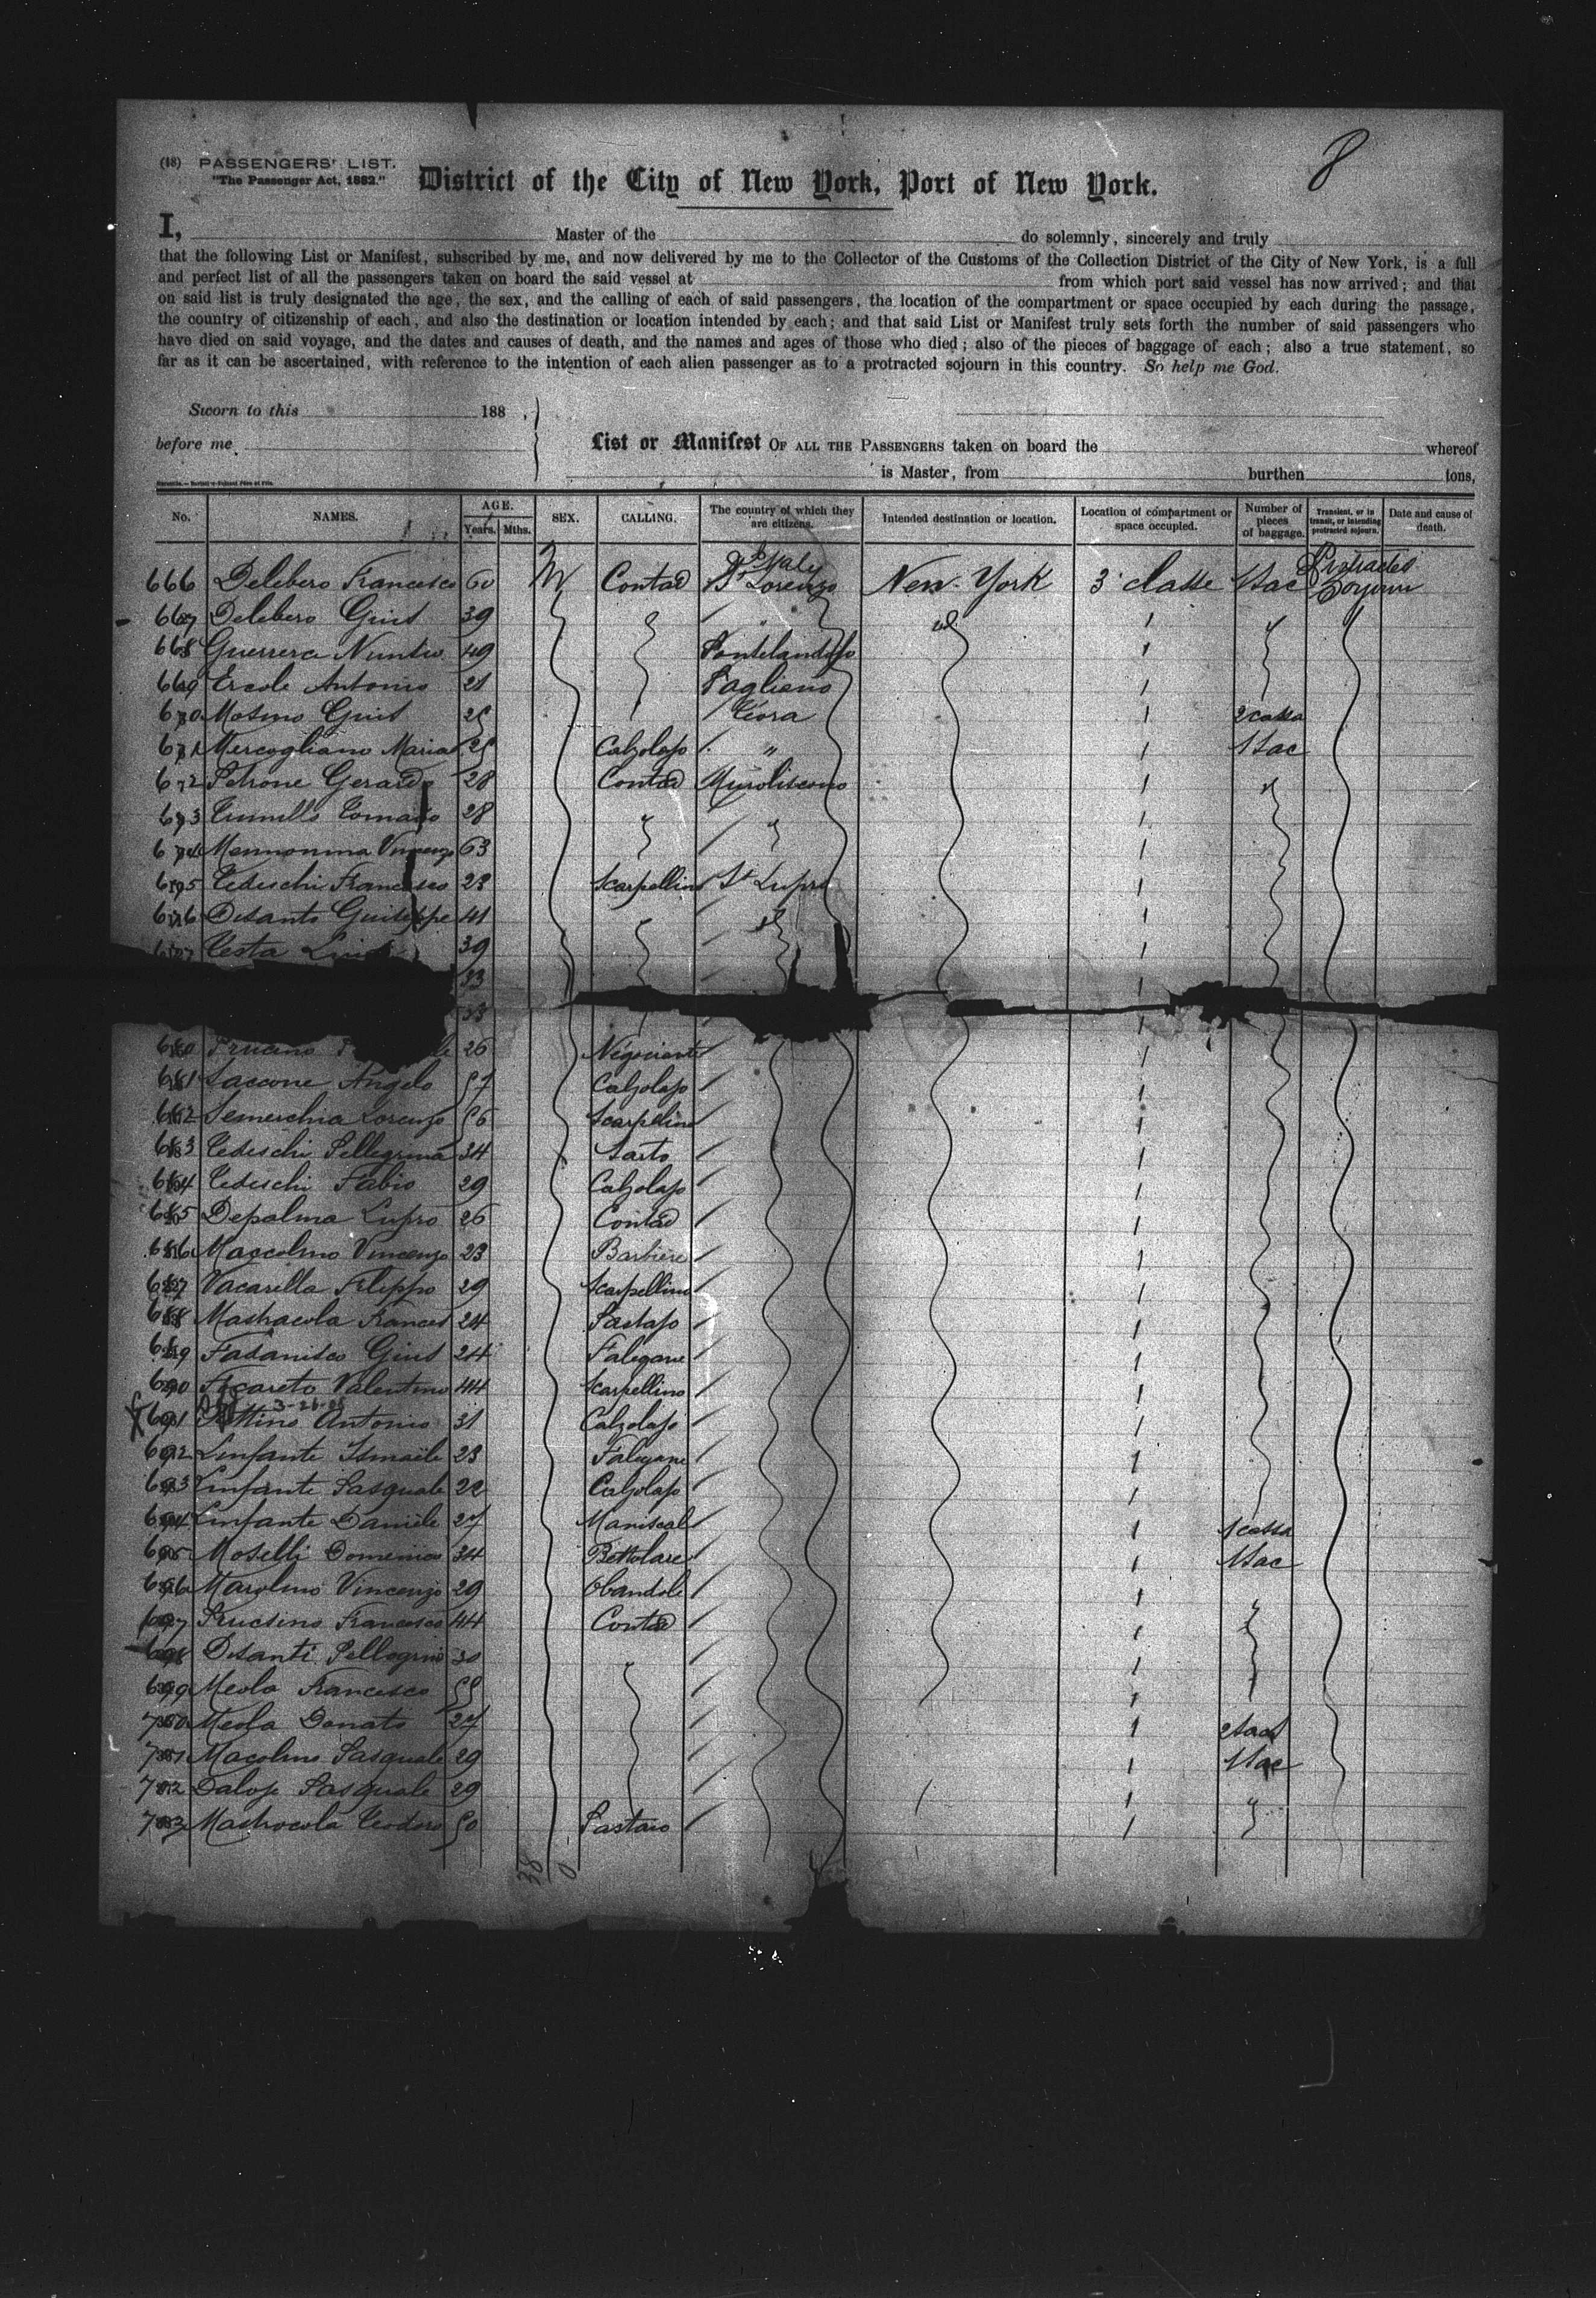 8
(18) PASSENGERS' LIST.
"The Passenger Act, 1882."
District of the City of New York, Port of New York.
I, Master of the do solemnly, sincerely and truly
that the following List or Manifest, subscribed by me, and now delivered by me to the Collector of the Customs of the Collection District of the City of New York, is a full
and perfect list of all the passengers taken on board the said vessel at from which port said vessel has now arrived; and that
on said list is truly designated the age, the sex, and the calling of each of said passengers, the location of the compartment or space occupied by each during the passage,
the country of citizenship of each, and also the destination or location intended by each; and that said List or Manifest truly sets forth the number of said passengers who
have died on said voyage, and the dates and causes of death, and the names and ages of those who died; also of the pieces of baggage of each; also a true statement, so
far as it can be ascertained, with reference to the intention of each alien passenger as to a protracted sojourn in this country. So help me God.
Sworn to this 188 ,
before me
List or Manifest OF ALL THE PASSENGERS taken on board the whereof
is Master, from burthen tons,
No. NAMES. AGE. Years. Mths. SEX. CALLING. The country of which they are citizens. Intended destination or location. Location of compartment or space occupied. Number of pieces of baggage. Transient, or in transit, or intending protracted sojourn. Date and cause of death.
666 Delebero Francesco 60 M Contad Italy St Lorenzo New-York 3 classe 1 Sac Protracted Sojourn
667 Delebero Gius 39 id
668 Guerrera Nuntio 49 Pontelandolfo
669 Ercole Antonio 21 Pagliano
670 Gius 25 Teora 2 cassa
671 Mercogliano Maria 25 Calzolajo " 1 Sac
672 Petrone Gerardo 28 Contad
673 28
674 Vincenzo 63
675 Tedeschi Francesco 23 Scarpellino St Lupo
676 Disanto Guiseppe 41
677 Testa 39
33
33
680 26 Negoziante
681 Iaccone Angelo 57 Calzolajo
682 Semerchia Lorenzo 56 Scarpellino
683 Tedeschi Pellegrina 34 Sarto
684 Tedeschi Fabio 29 Calzolajo
685 Depalma Lupro 26 Contad
686 Maccolino Vincenzo 23 Barbiere
687 Vacarella Filippo 29 Scarpellino
688 Mastracola Frances 24 Pastajo
689 Fasanisco Gius 24 Falegname
690 Valentino 44 Scarpellino
3-26-
691 Antonio 31 Calzolajo
692 Linfante Ismaele 23
693 Linfante Pasquale 22 Calzolajo
694 Linfante Daniele 27 Maniscal 1 cassa
695 Moselli Domenico 34 Bettolare 1 Sac
696 Marolino Vincenzo 29
697 Francesco 44 Contad
698 Disanti Pellegrino 30
699 Meola Francesco 55
700 Meola Donato 27 2 Sacs
701 Macolino Pasquale 29 1 Sac
702 Pasquale 29
703 Mastrocola Teodoro 50 Pastaio
38 0